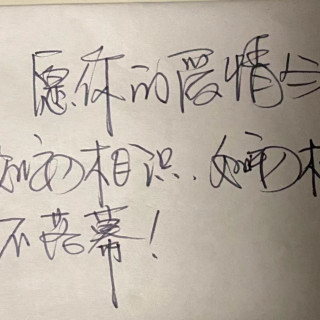 愿你的爱情
如初相识、如初相
不落幕！